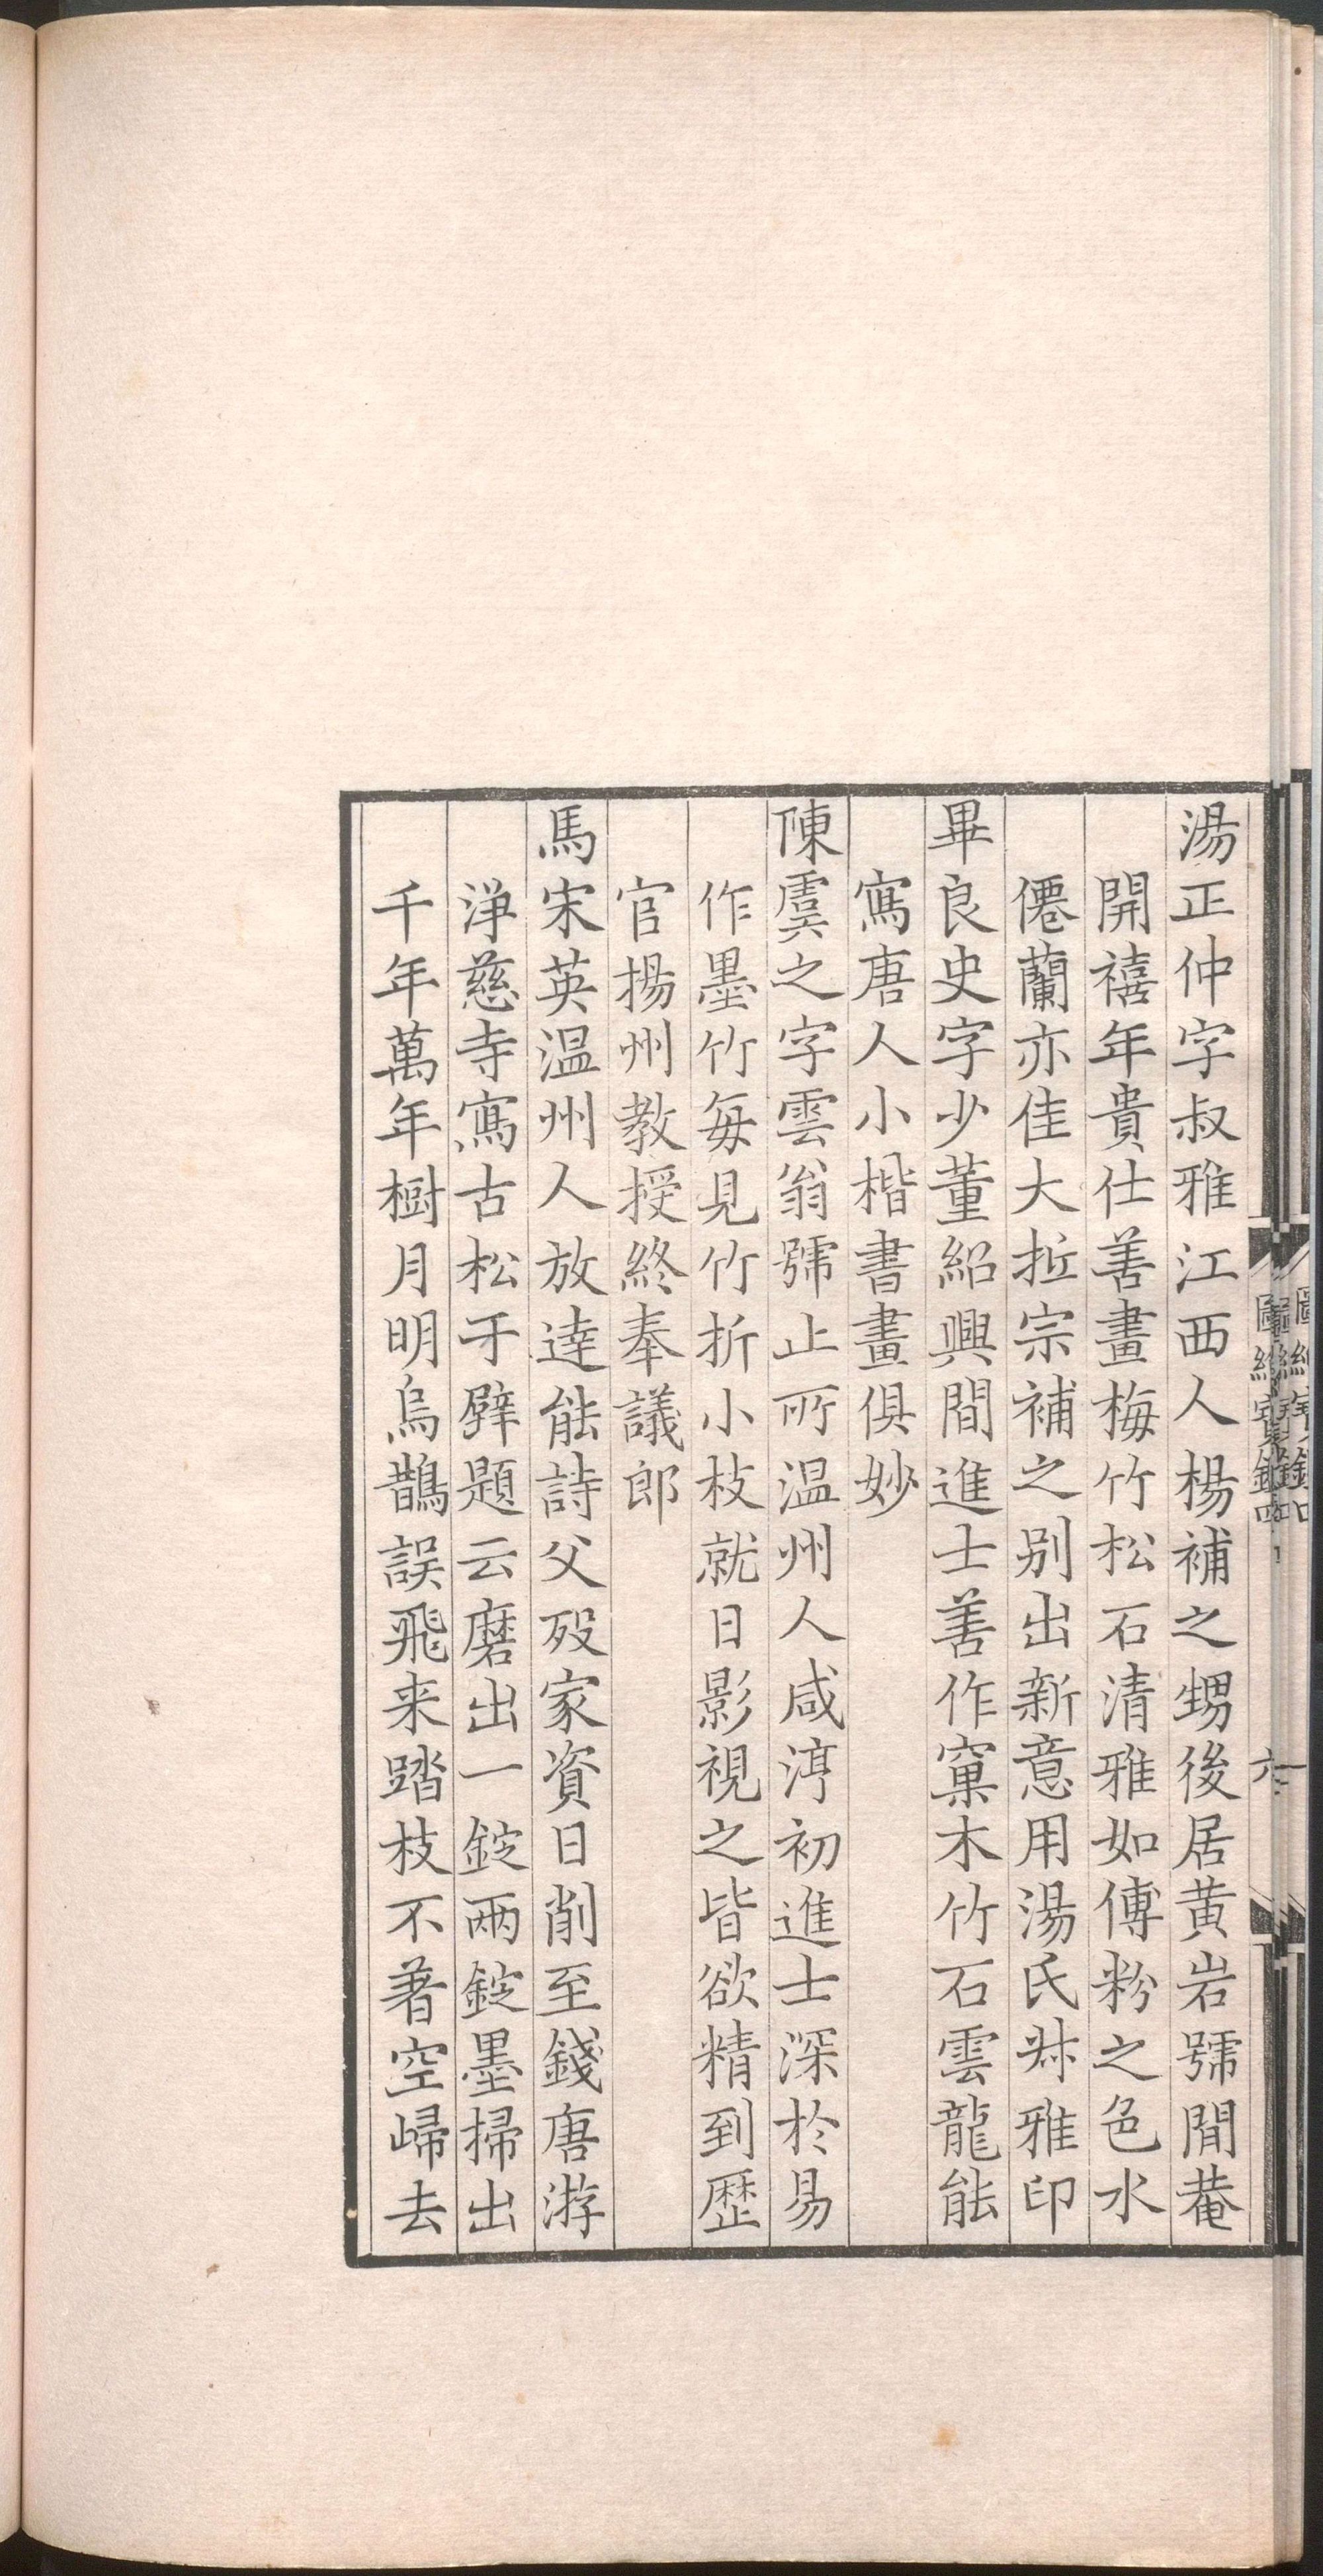 湯正仲字叔雅江西人楊補之甥後居黄岩號閒菴
開禧年貴仕善畫梅竹松石清雅如傅粉之色水
僊蘭亦佳大抵宗補之别出新意用湯氏叔雅印
畢良史字少董紹興間進士善作窠木竹石雲龍能
寫唐人小楷書畫俱妙
陳虞之字雲翁號止所温州人咸淳初進士深於易
作墨竹每見竹折小枝就日影視之皆欲精到歷
官揚州教授終奉議郎
馬宋英温州人放達能詩父歿家資日削至錢唐游
淨慈寺寫古松于壁題云磨出一錠兩錠墨掃出
千年萬年樹月明烏鵲誤飛来踏枝不著空歸去
圖繪寶鑑四
六